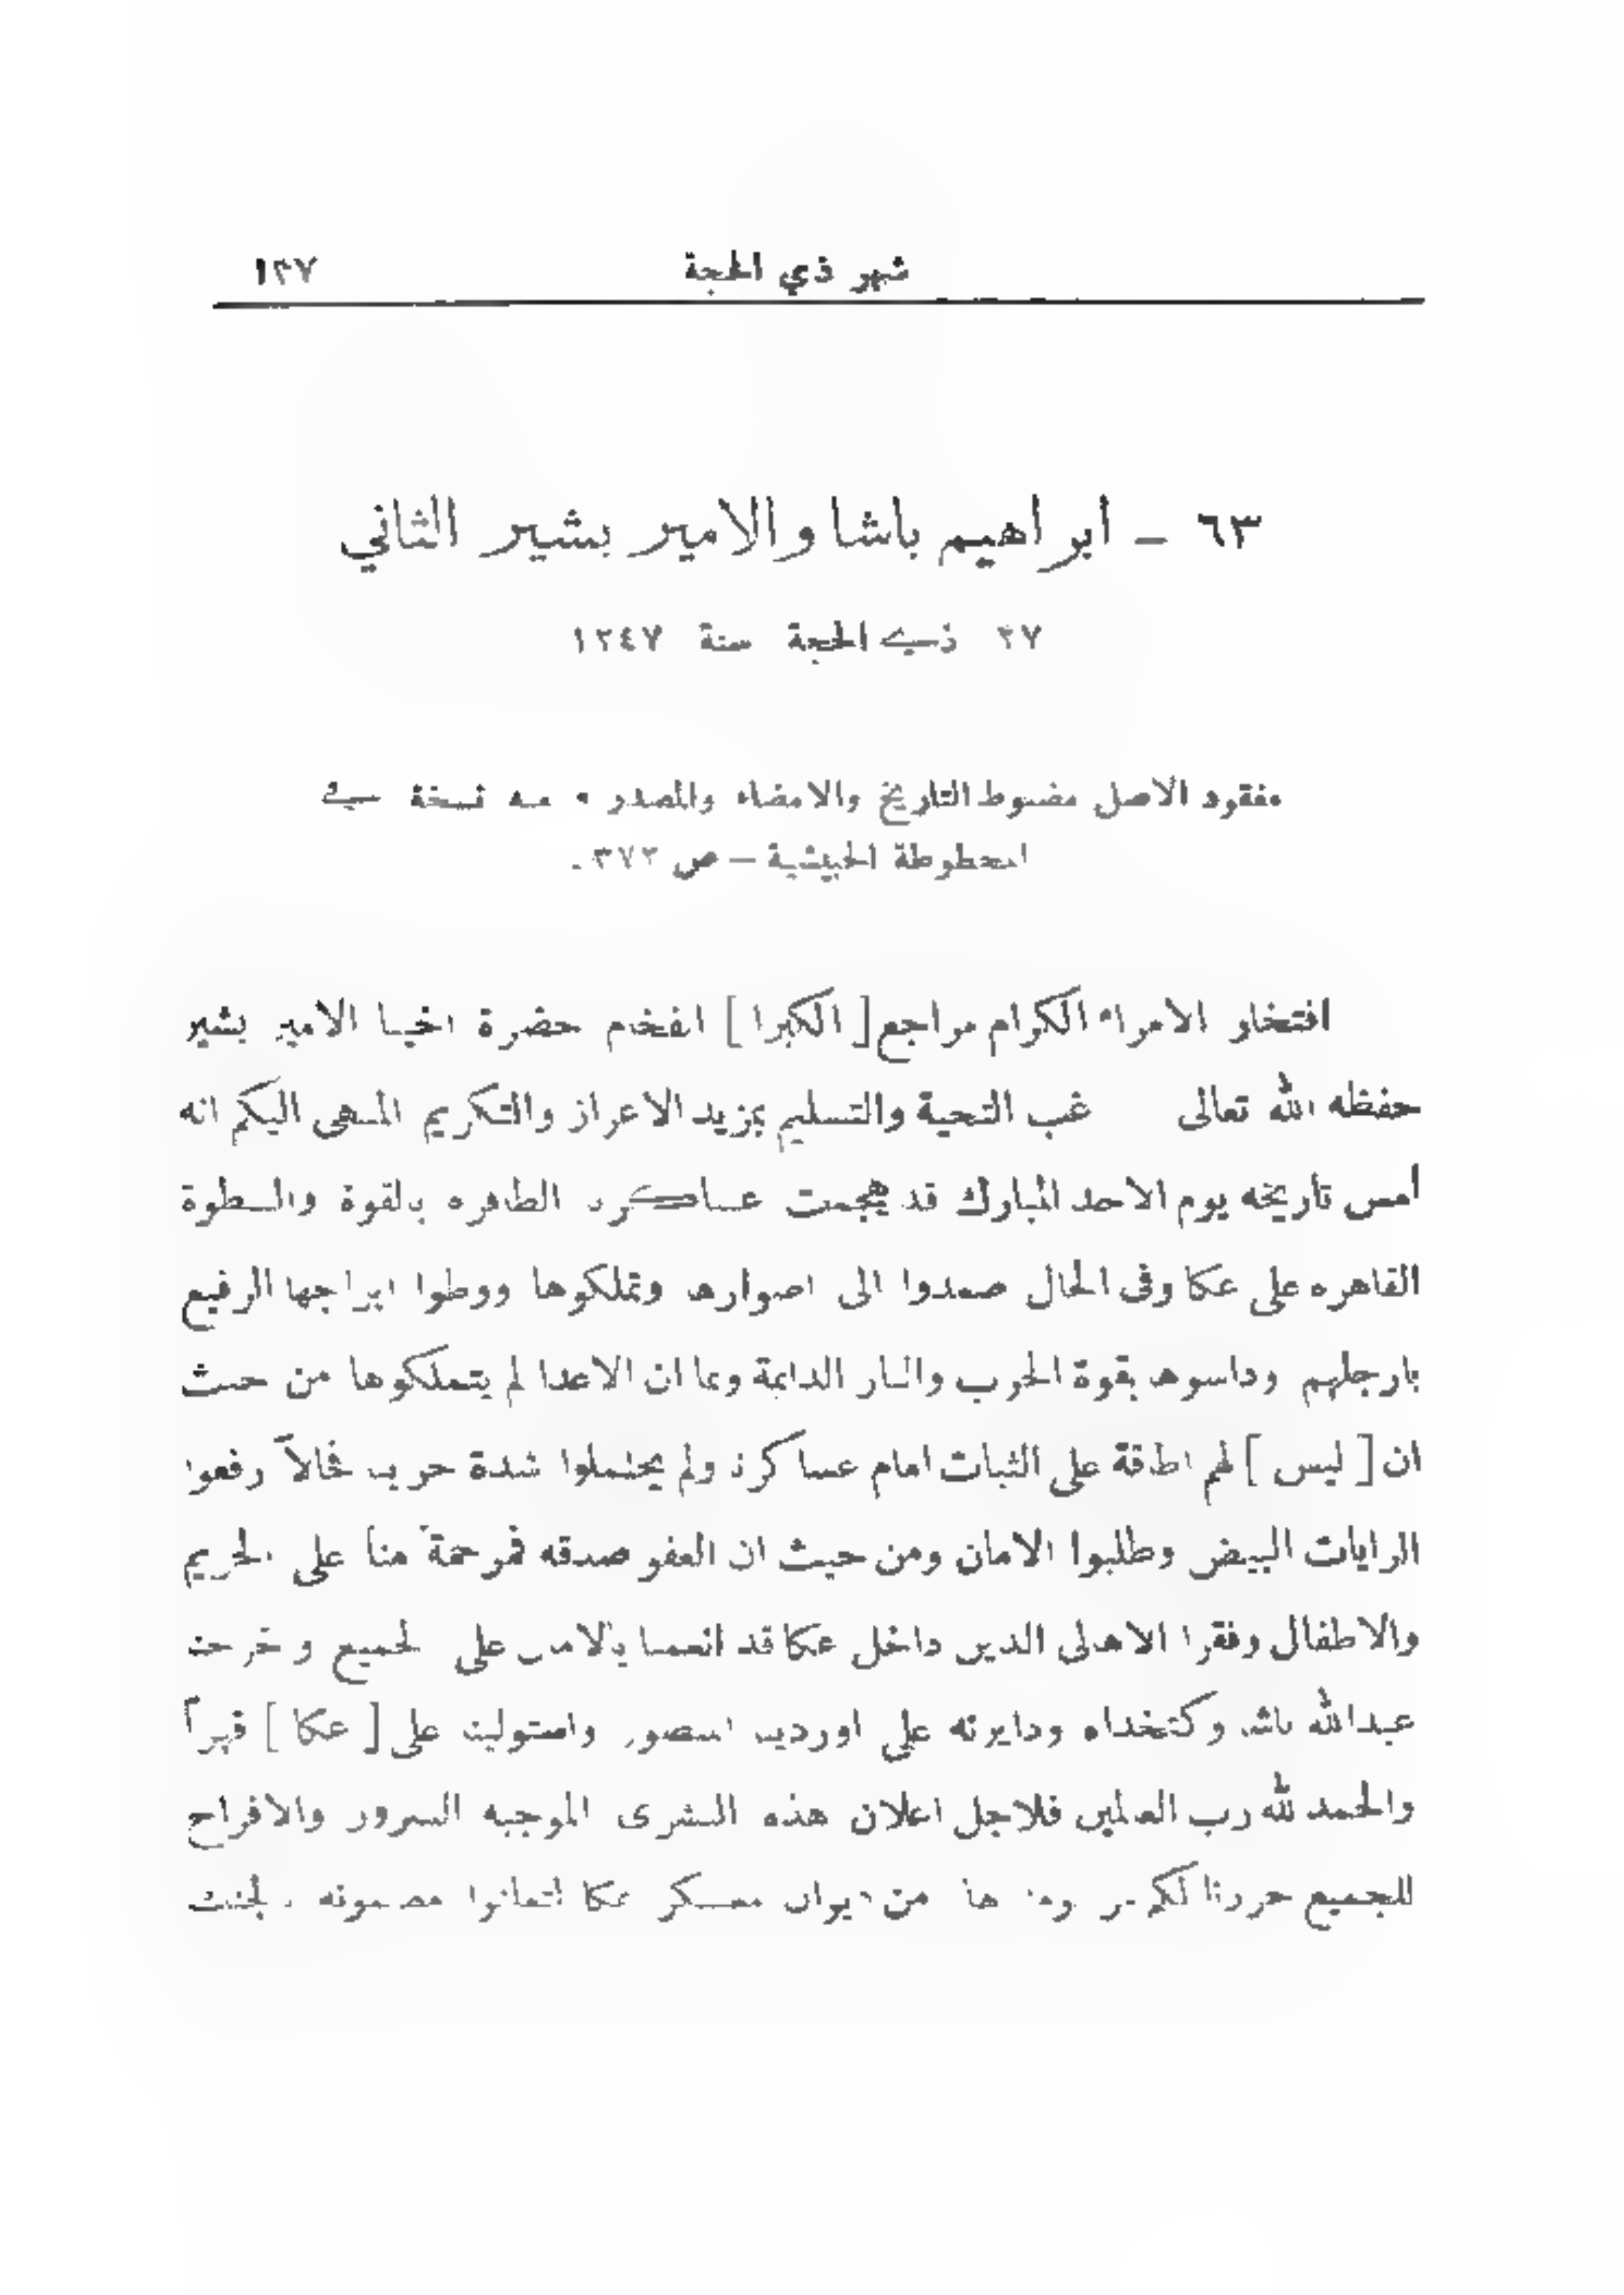 شهر ذي الحجة ١٢٧
٦٣ – ابراهيم باشا والامير بشير الثاني
٢٧ ذي الحجة سنة ١٢٤٧
مفقود الاصل مضبوط التاريخ والامضاء والمصدر • منه نسخة في
المخطوطة الحبيشية – ص ٣٧٢ .
افتخار الامراء الكرام مراجع [ الكبرا ] الفخام حضرة اخينا الامير بشير
حفظه الله تعالى غب التحية والتسليم بمزيد الاعزاز والتكريم المنهى اليكم انه
أمس تاريخه يوم الاحد المبارك قد هجمت عساكرنا الظاهره بالقوة والسطوة
القاهره على عكا وفى الحال صعدوا الى اصوارها وتملكوها ووطوا ابراجها الرفيع
بارجلهم وداسوها بقوة الحرب والنار الدايمة وبما ان الاعدا لم يتملكوها من حيث
ان [ ليس ] لهم اطاقة على الثبات امام عساكرنا ولم يحتملوا شدة حربنا فحالاً رفعوا
الرايات البيض وطلبوا الامان ومن حيث ان العفو صدقه فمرحمةً منا على الحريم
والاطفال وفقرا الاهالى الدين داخل عكا قد انعمنا بالامان على الجميع وخرجت
عبدالله باشا وكتخداه ودايرته على اوردينا المنصور واستوليت على [ عكا ] قهراً
والحمد لله رب العالمين فلاجل اعلان هذه البشرى الموجبه السرور والافراح
للجميع حررنا لكم من ديوان معسكر عكا لتعلنوا مضمونه